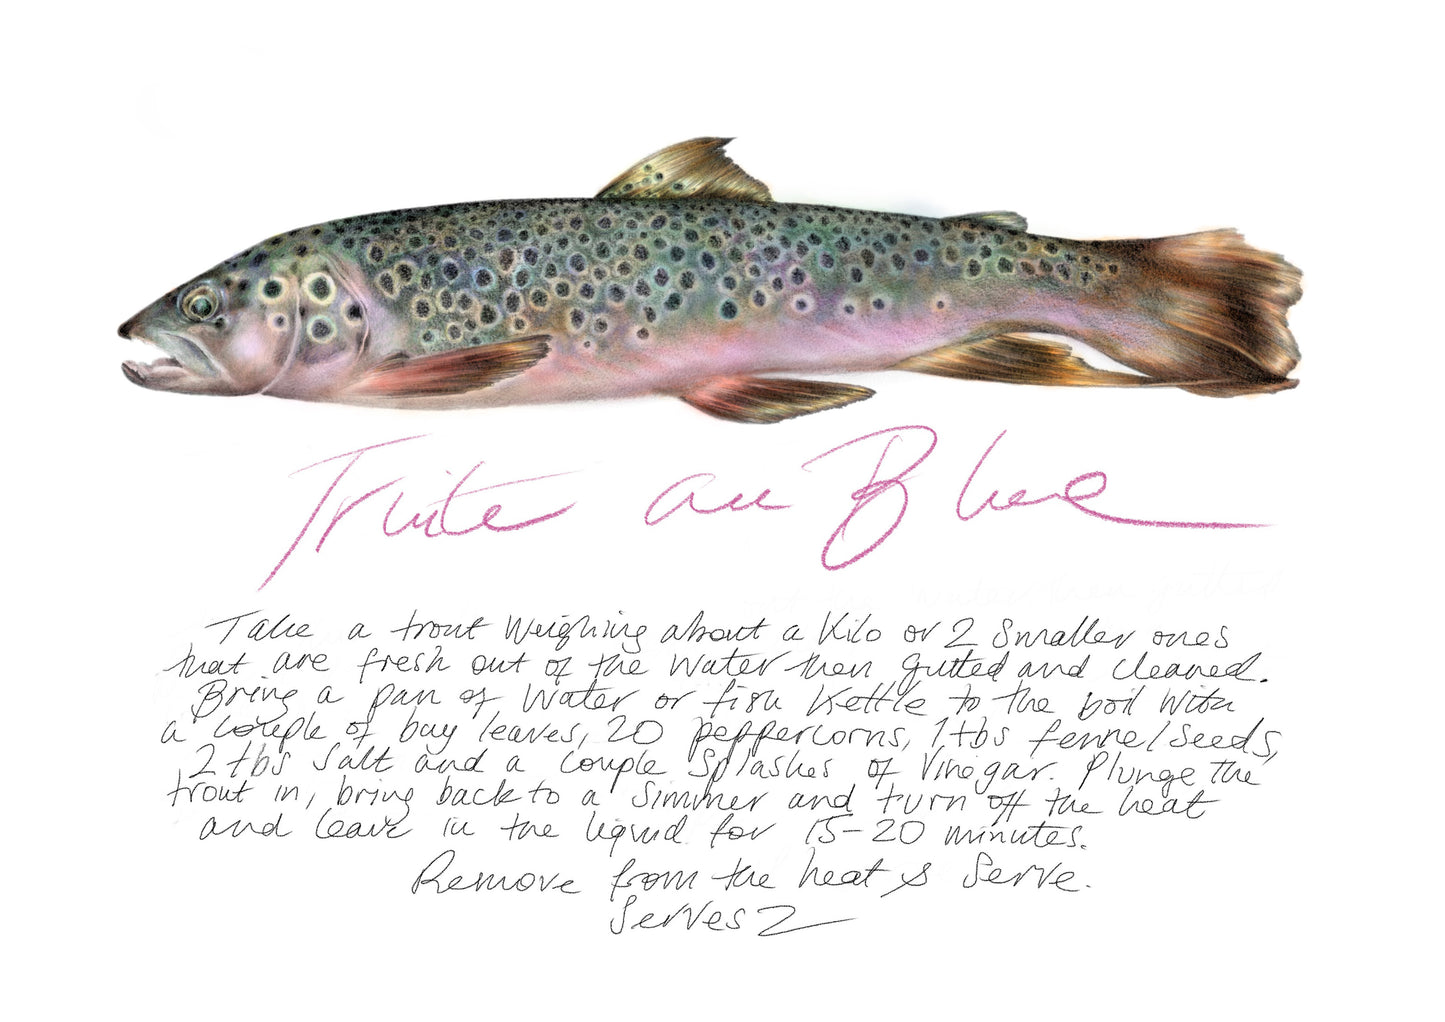 Truite au Blue
Take a trout weighing about a Kilo or 2 smaller ones
that are fresh out of the water then gutted and cleaned.
Bring a pan of water or fish kettle to the boil with
a couple of bay leaves, 20 peppercorns, 1 tbs fennel seeds,
2 tbs salt and a couple splashes of vinegar. Plunge the
trout in, bring back to a simmer and turn off the heat
and leave in the liquid for 15-20 minutes.
Remove from the heat & serve.
Serves 2